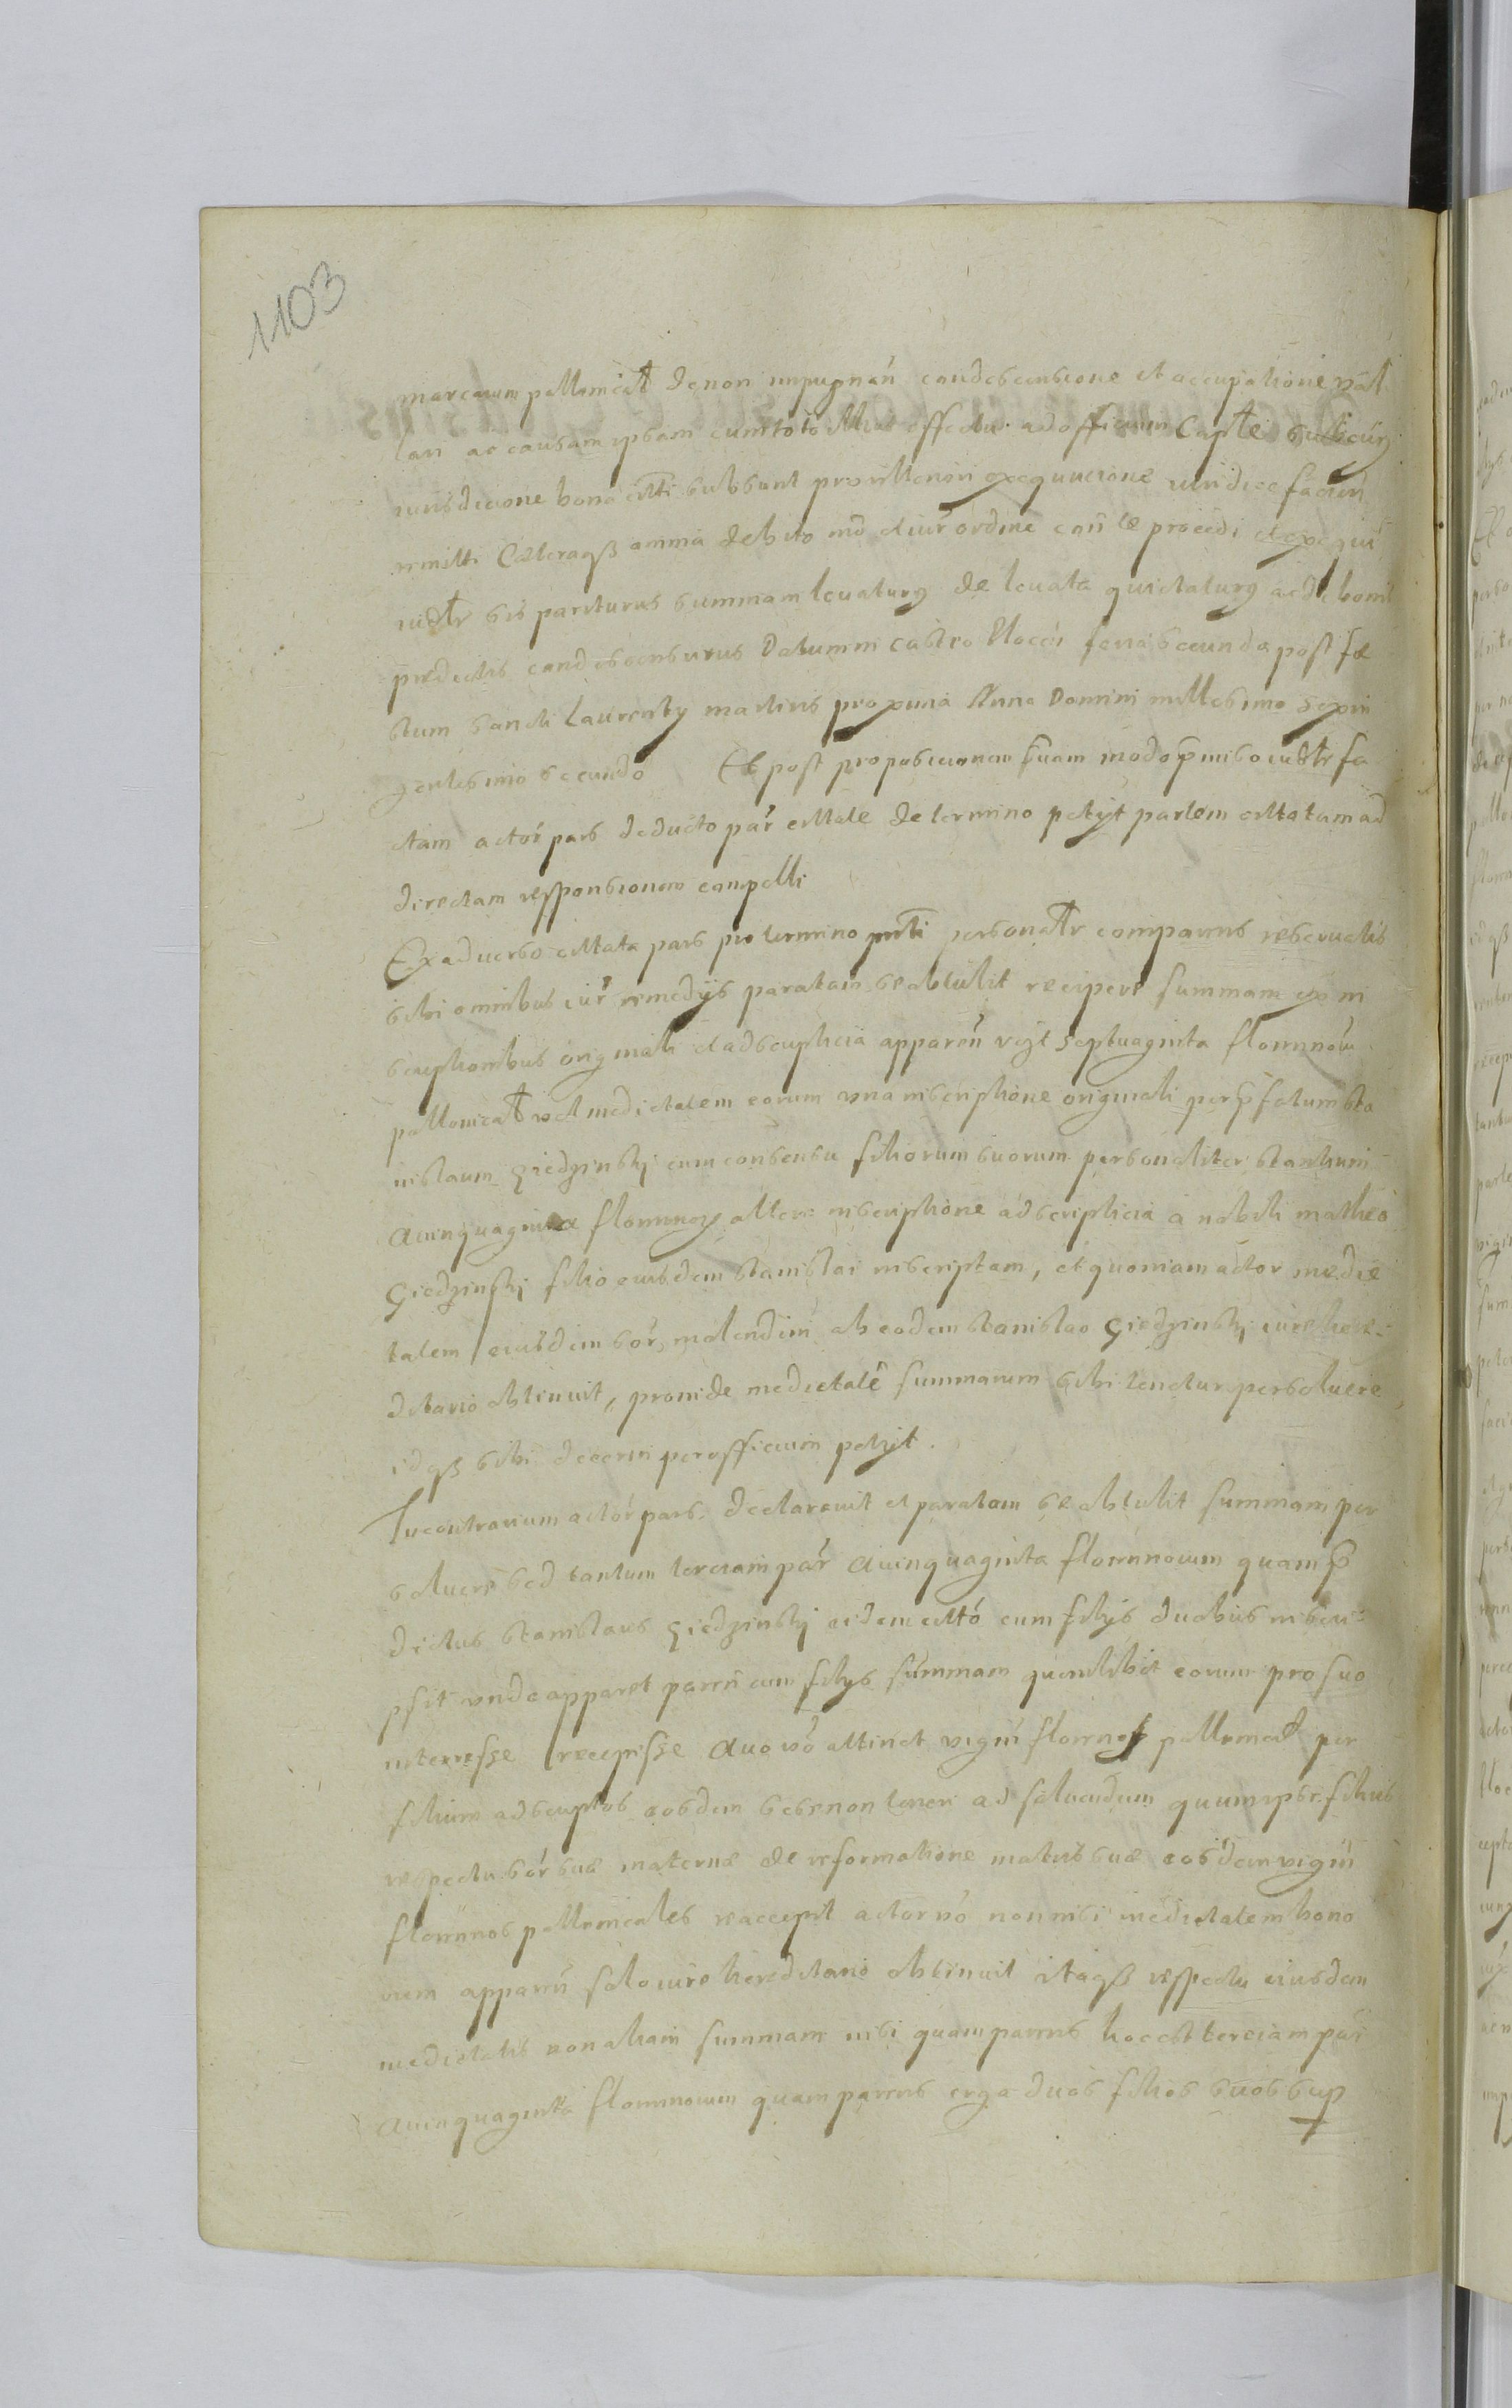 1103
marcarum pollonicat de non impugnan condescensione et occupatione val
lari ac causam ipsam cum toto illius effectu ad officium Captte sub cuius
iurisdicione bona citti subsunt pro ulteriori exequucione iuridice facien
remitti Cæteraqß omnia debito mo et iur ordine in ca procedi et exequi
iudtr sis pariturus summam levaturg de levata quietaturg ac de bonis
prædictis condescensurus Datum in castro Plocen feria secunda post fæ
stum sancti Laurenty martiris proxima Anno Domini millesimo sexin
gentesimo secundo Et post propositionem suam modo pmisso iudtr fa
ctam actor pars deducto par cittate de termino petyt partem cittatam ad
directam responsionem compelli
Ex adverso cittata pars pro termino pnti personatr comparens reservatis
sibi omnibus iur remedijs paratam se obtulit recipere summam ex in
scriptionibus originali et adscripticia apparen vizt septuaginta florenorum
pollonicat vel medietatem eorum una inscriptione originali per pfatum Sta
nislaum Giedzinskj cum consensu filiorum suorum personaliter stantium
Quinquaginta florenorz altera inscriptione adscripticia a nobili matheo
Giedzinskj filio eiusdem Stanislai inscriptam, et quoniam actor medie
tatem eiusdem sor, molendini ab eodem Stanislao Giedzinskj iure here-
ditario obtinuit, proinde medietatē summarum sibi tenetur persoluere
idqß sibi decerni per officium petyt.
In contrarium actor pars declaravit et paratam se obtulit summam per
soluere sed tantum terciam par Quinquaginta florenorum quam p
dictus Stanislaus Giedzinskj eidem citto cum filijs duobus inscri-
psit unde apparet paren cum filijs summam quemlibet eorum pro suo
interresse recepisse Quo vo attinet vigin florenos pollonicat per
filium adscriptos eosdem se non teneri ad soluendum quum ipse filius
respectu sor suæ maternæ de reformatione matris suæ eosdem vigin
florenos pollonicales reaccepit actor vo non nisi medietatem bono
rum apparen solo iure hereditario obtinuit itaqß respectu eiusdem
medietatis non aliam summam nisi quam parens hoc est terciam par
Quinquaginta florenorum quam parens erga duos filios suos sup